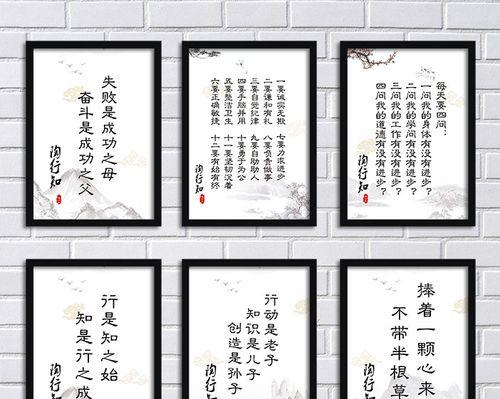 失败是成功之母
奋斗是成功之父
陶行知
一要诚实无欺
二要谦和有礼
三要自觉纪律
四要手脑并用
五要整洁卫生
六要正确敏捷
七要力求进步
八要负责做事
九要自助助人
十要勇于为公
十一要坚韧沉着
十二要有始有终
陶行知
每天要四问：
一问我的身体有没有进步？
二问我的学问有没有进步？
三问我的工作有没有进步？
四问我的道德有没有进步？
陶行知
行是知之始
知是行之成
陶行知
行动是老子
知识是儿子
创造是孙子
陶行知
捧着一颗心来
不带半根草